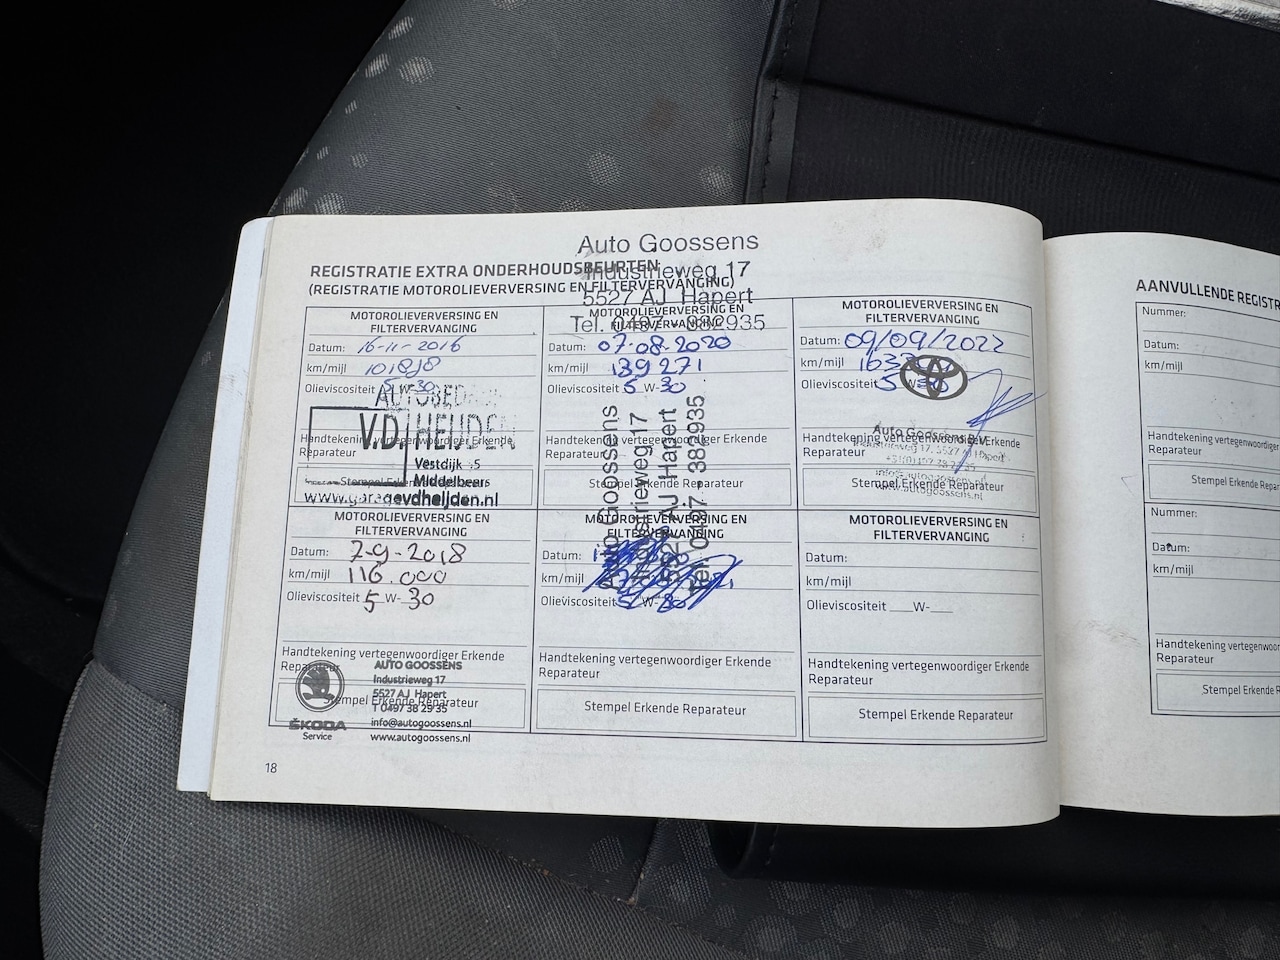 Auto Goossens
Industrieweg 17
5527 AJ Hapert
Tel. 0497 - 382935
REGISTRATIE EXTRA ONDERHOUDSBEURTEN
(REGISTRATIE MOTOROLIEVERVERSING EN FILTERVERVANGING)
MOTOROLIEVERVERSING EN
FILTERVERVANGING
Datum: 16-11-2016
km/mijl 101898
Olieviscositeit 5 W-30
AUTOBEDRIJF
V.D. HEIJDEN
Handtekening vertegenwoordiger Erkende
Reparateur
Vestdijk
Middelbeers
Stempel Erkende Reparateur
www.garagevdheijden.nl
MOTOROLIEVERVERSING EN
FILTERVERVANGING
Datum: 07-08-2020
km/mijl 139 271
Olieviscositeit 5 W-30
Handtekening vertegenwoordiger Erkende
Reparateur
Stempel Erkende Reparateur
Auto Goossens
Industrieweg 17
5527 AJ Hapert
Tel. 0497 - 382935
MOTOROLIEVERVERSING EN
FILTERVERVANGING
Datum: 09/09/2022
km/mijl
Olieviscositeit 5 W-30
Auto Goossens B.V.
Handtekening vertegenwoordiger Erkende
Reparateur
Industrieweg 17, 5527 AJ Hapert
+31(0)497 38 29 35
info@autogoossens.nl
Stempel Erkende Reparateur
www.autogoossens.nl
MOTOROLIEVERVERSING EN
FILTERVERVANGING
Datum: 7-9-2018
km/mijl 116.000
Olieviscositeit 5 W-30
Handtekening vertegenwoordiger Erkende
Reparateur
AUTO GOOSSENS
Industrieweg 17
5527 AJ Hapert
Stempel Erkende Reparateur
T 0497 38 29 35
info@autogoossens.nl
www.autogoossens.nl
ŠKODA
Service
MOTOROLIEVERVERSING EN
FILTERVERVANGING
Datum:
km/mijl
Olieviscositeit 5 W-30
Handtekening vertegenwoordiger Erkende
Reparateur
Stempel Erkende Reparateur
MOTOROLIEVERVERSING EN
FILTERVERVANGING
Datum:
km/mijl
Olieviscositeit ___W-___
Handtekening vertegenwoordiger Erkende
Reparateur
Stempel Erkende Reparateur
18
AANVULLENDE REGISTR
Nummer:
Datum:
km/mijl
Handtekening vertegenwoordiger
Reparateur
Stempel Erkende Repar
Nummer:
Datum:
km/mijl
Handtekening vertegenwoor
Reparateur
Stempel Erkende R